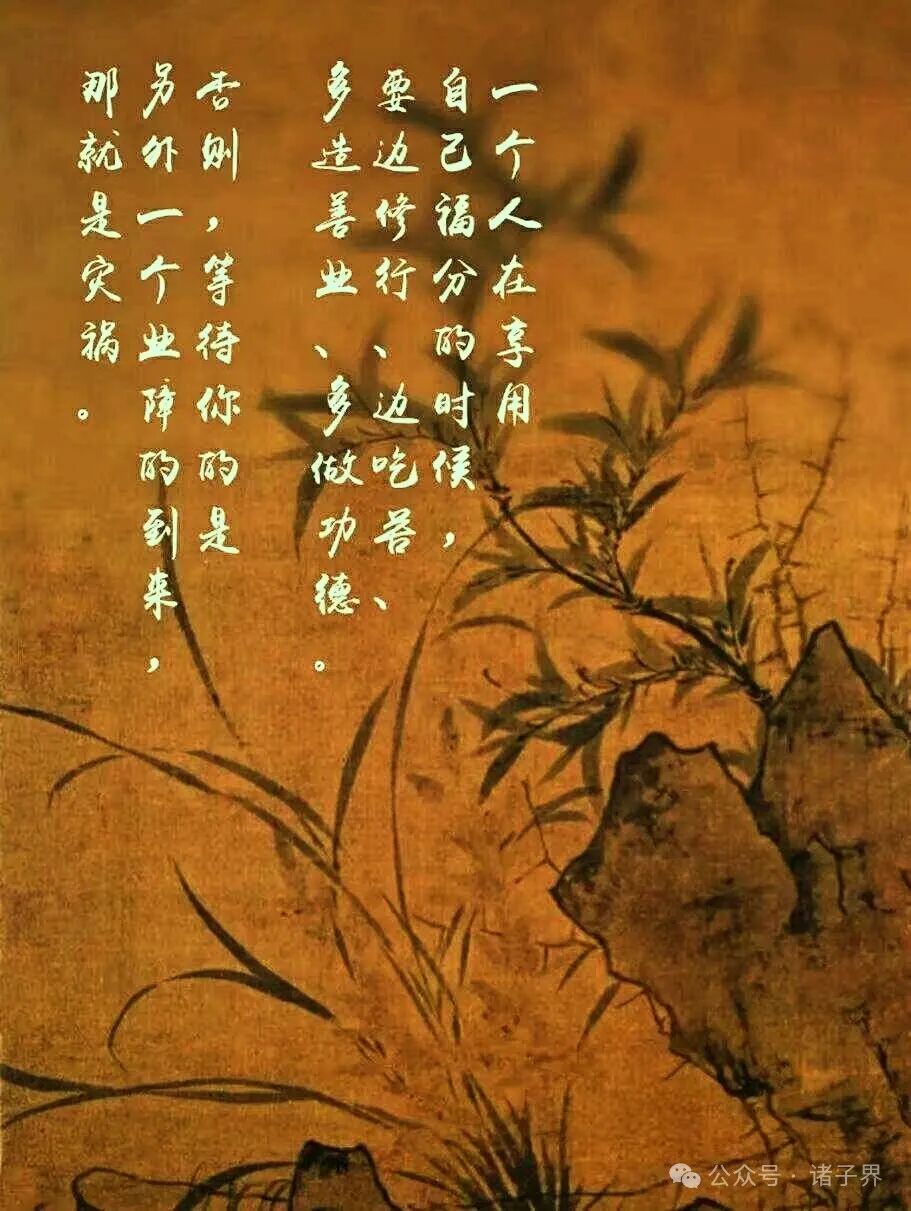 一个人在享用
自己福分的时候，
要边修行、边吃苦、
多造善业、多做功德。
否则，等待你的是
另外一个业障的到来，
那就是灾祸。
公众号·诸子界